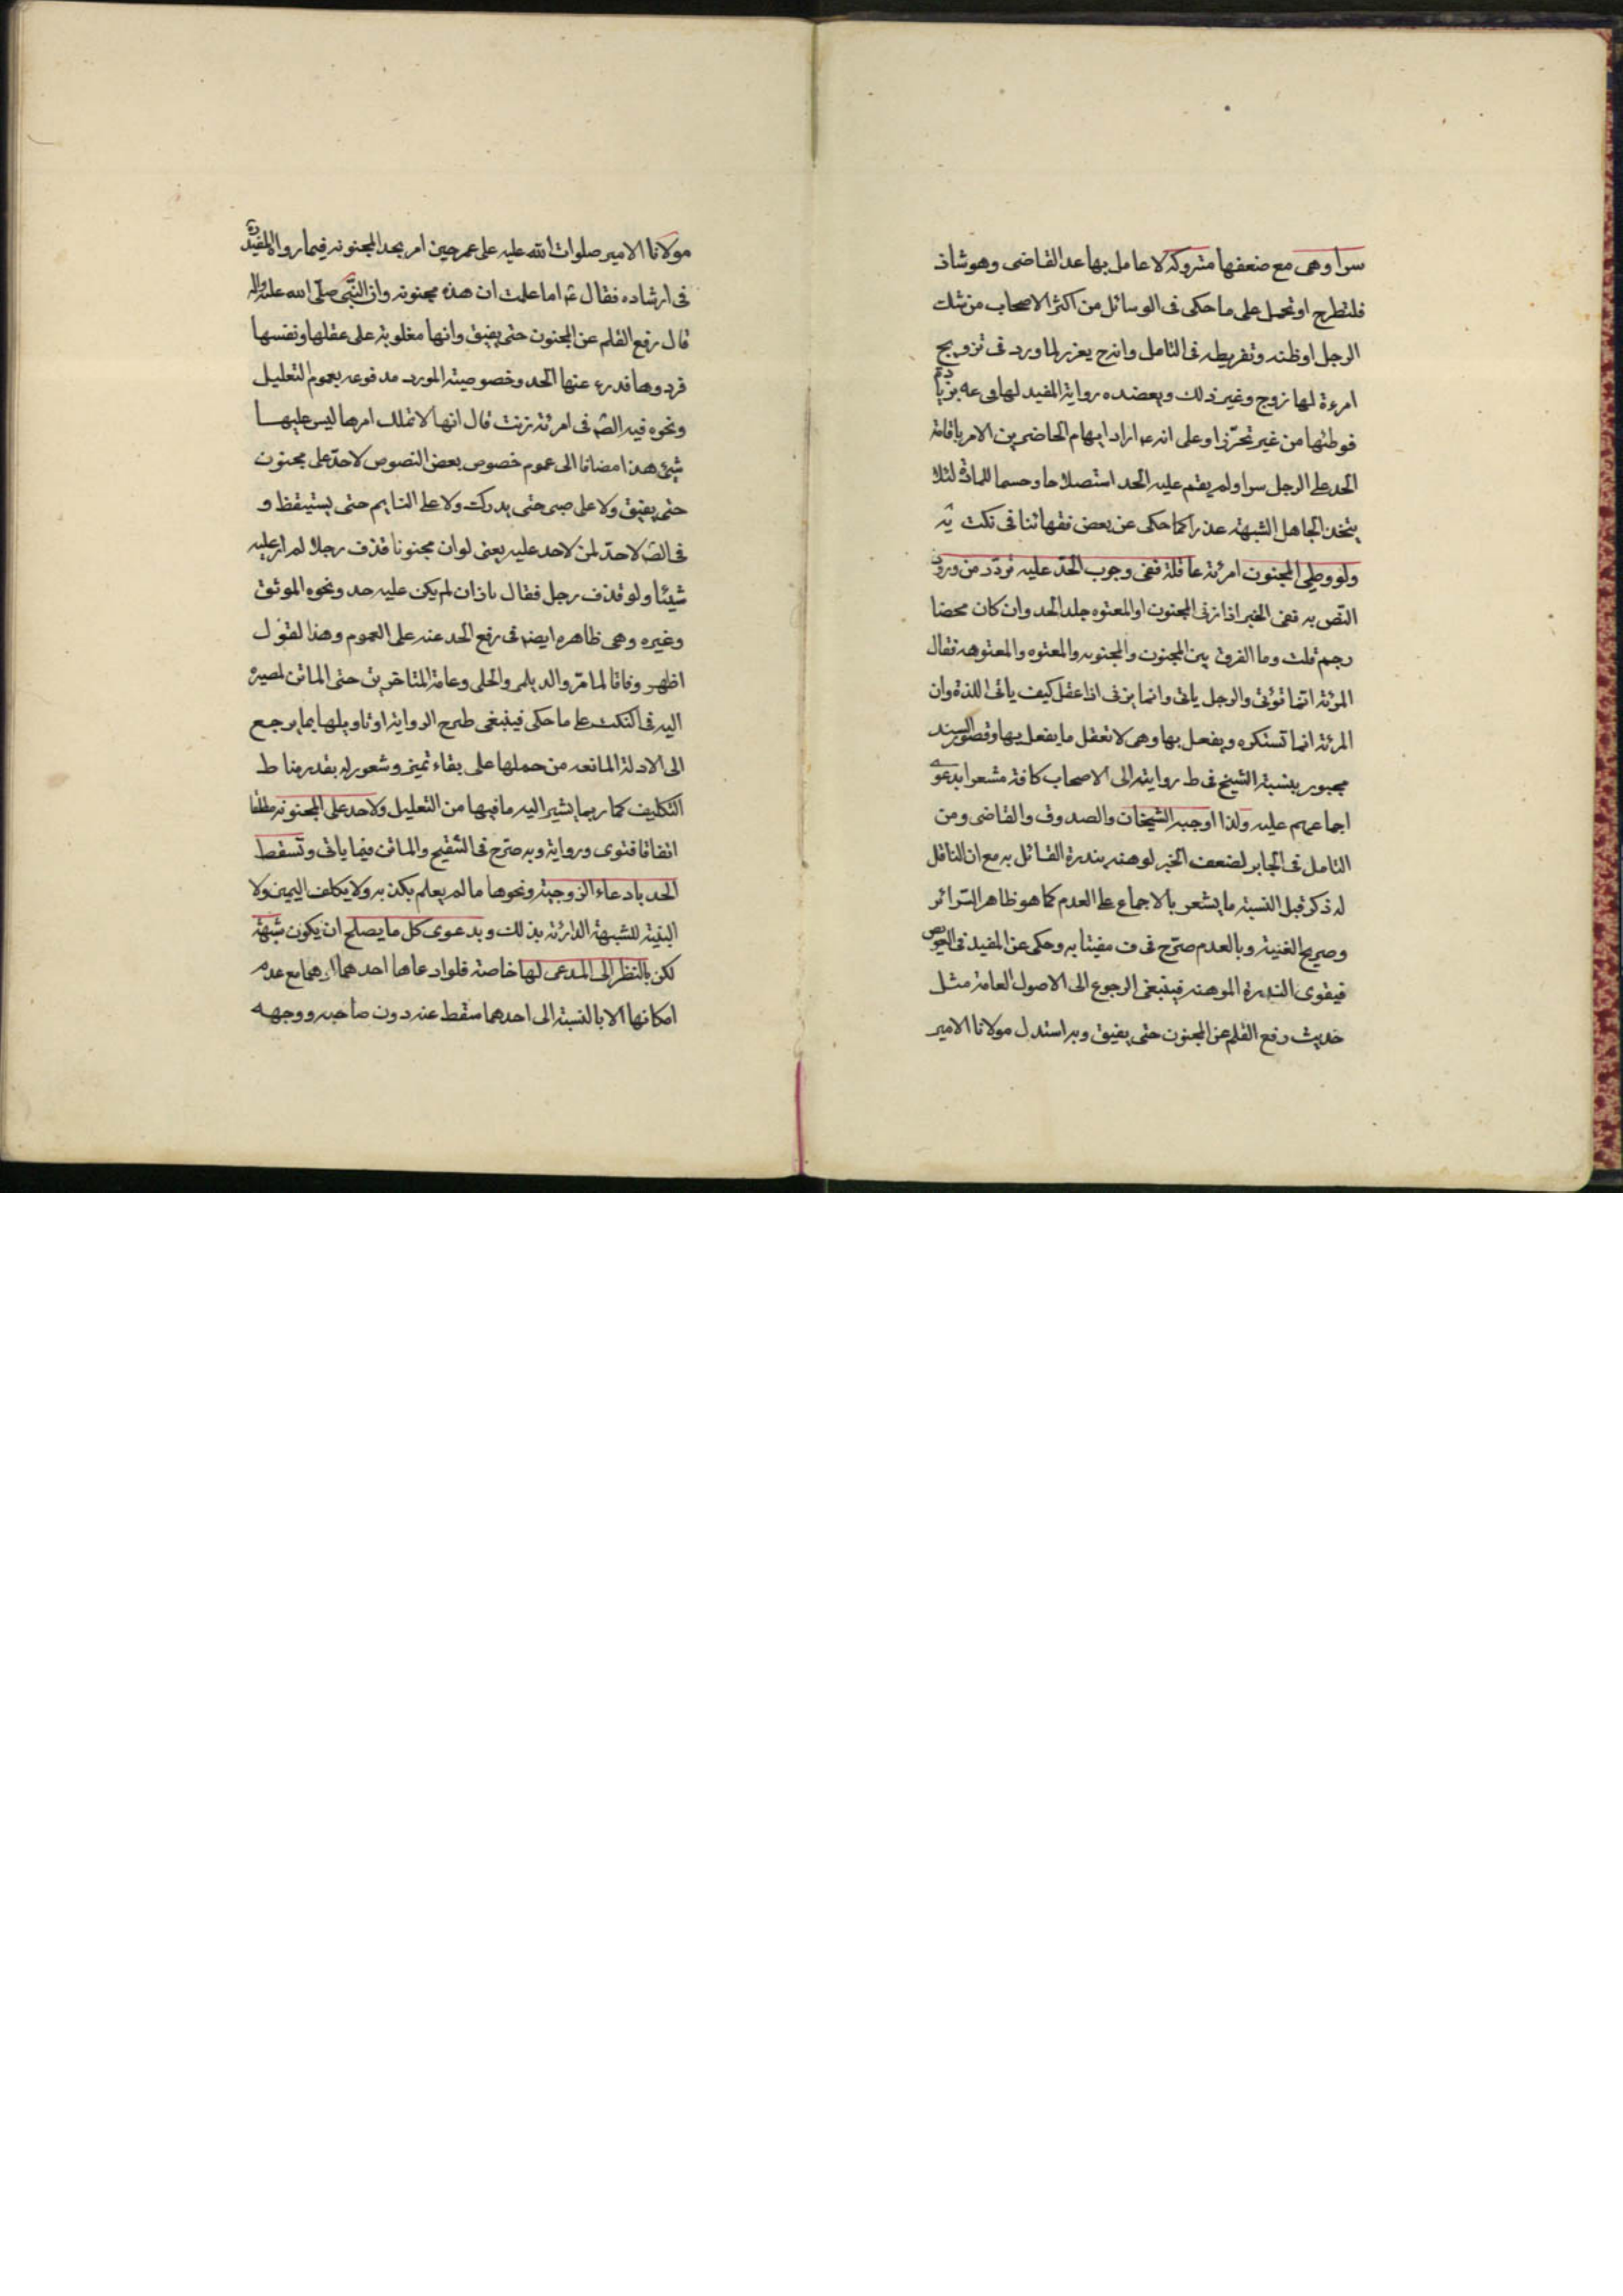 سرا وهى مع ضعفها متروكة لا عامل بها عدا القاضى وهو شاذ
فلتطرح او تحمل على ما حكى فى الوسائل من اكثر الاصحاب من شك
الرجل او ظنه وتفريطه فى التامل وانه ح يعزر لما ورد فى تزويج
امرءة لها زوج وغير ذلك ويعضده رواية المفيد لها
فوطئها من غير تحرز او على انه ع اراد ايهام الحاضرين الامر باقامة
الحد على الرجل سرا ولم يقم عليه الحد استصلاحا وحسما للمادة لئلا
يتخذ الجاهل الشبهة عذرا كما حكى عن بعض فقهائنا فى نكت يه
ولو وطى المجنون امرئة عاقلة ففى وجوب الحد عليه تردد من ورود
النص به ففى الخبر اذا زنى المجنون او المعتوه جلد الحد وان كان محصنا
رجم قلت وما الفرق بين المجنون والمجنونه والمعتوه والمعتوهة فقال
المرئة انما تؤتى والرجل ياتى وانما يزنى اذا عقل كيف ياتى اللذة وان
المرئة انما تستكره ويفعل بها وهى لا تعقل ما يفعل بها وقصور السند
مجبور بنسبة الشيخ فى ط روايته الى الاصحاب كافة مشعرا بدعوى
اجماعهم عليه ولذا اوجبه الشيخان والصدوق والقاضى ومن
التامل فى الجابر لضعف الخبر لوهنه بندرة القائل به مع ان الناقل
له ذكر قبل النسبة ما يشعر بالاجماع على العدم كما هو ظاهر السرائر
وصريح الغنية وبالعدم صرح فى ف مفتيا به وحكى عن المفيد فى العويص
فيقوى الندرة الموهنه فينبغى الرجوع الى الاصول العامة مثل
حديث رفع القلم عن المجنون حتى يفيق وبه استدل مولانا الامير
مولانا الامير صلوات الله عليه على عمر حين امر بحد المجنونه فيما رواه المفيد ره
فى ارشاده فقال ع اما علمت ان هذه مجنونه وان النبى صلى الله عليه واله
قال رفع القلم عن المجنون حتى يفيق وانها مغلوبة على عقلها ونفسها
فردوها فدرء عنها الحد وخصوصية المورد مدفوعه بعموم التعليل
ونحوه فيه الص فى امرئة زنت قال انها لا تملك امرها ليس عليها
شئ هذا مضافا الى عموم خصوص بعض النصوص لا حد على مجنون
حتى يفيق ولا على صبى حتى يدرك ولا على النايم حتى يستيقظ و
فى الص لا حد لمن لا حد عليه يعنى لو ان مجنونا قذف رجلا لم ار عليه
شيئا ولو قذف رجل فقال يا زان لم يكن عليه حد ونحوه الموثق
وغيره وهى ظاهره ايضا فى رفع الحد عنه على العموم وهذا القول
اظهر وفاقا لما مر والديلمى والحلى وعامة المتاخرين حتى الماتن لمصيره
اليه فى النكت على ما حكى فينبغى طرح الرواية او تاويلها بما يرجع
الى الادلة المانعه من حملها على بقاء تميز وشعور له بقدر مناط
التكليف كما ربما يشير اليه ما فيها من التعليل ولا حد على المجنونه مطلقا
اتفاقا فتوى ورواية وبه صرح فى التنقيح والماتن فيما ياتى وتسقط
الحد بادعاء الزوجية ونحوها ما لم يعلم بكذبه ولا يكلف اليمين ولا
البينة للشبهة الدارئة بذلك وبدعوى كل ما يصلح ان يكون شبهة
لكن بالنظر الى المدعى لها خاصة فلو ادعاها احدهما مع عدم
امكانها الا بالنسبة الى احدهما سقط عنه دون صاحبه ووجهه